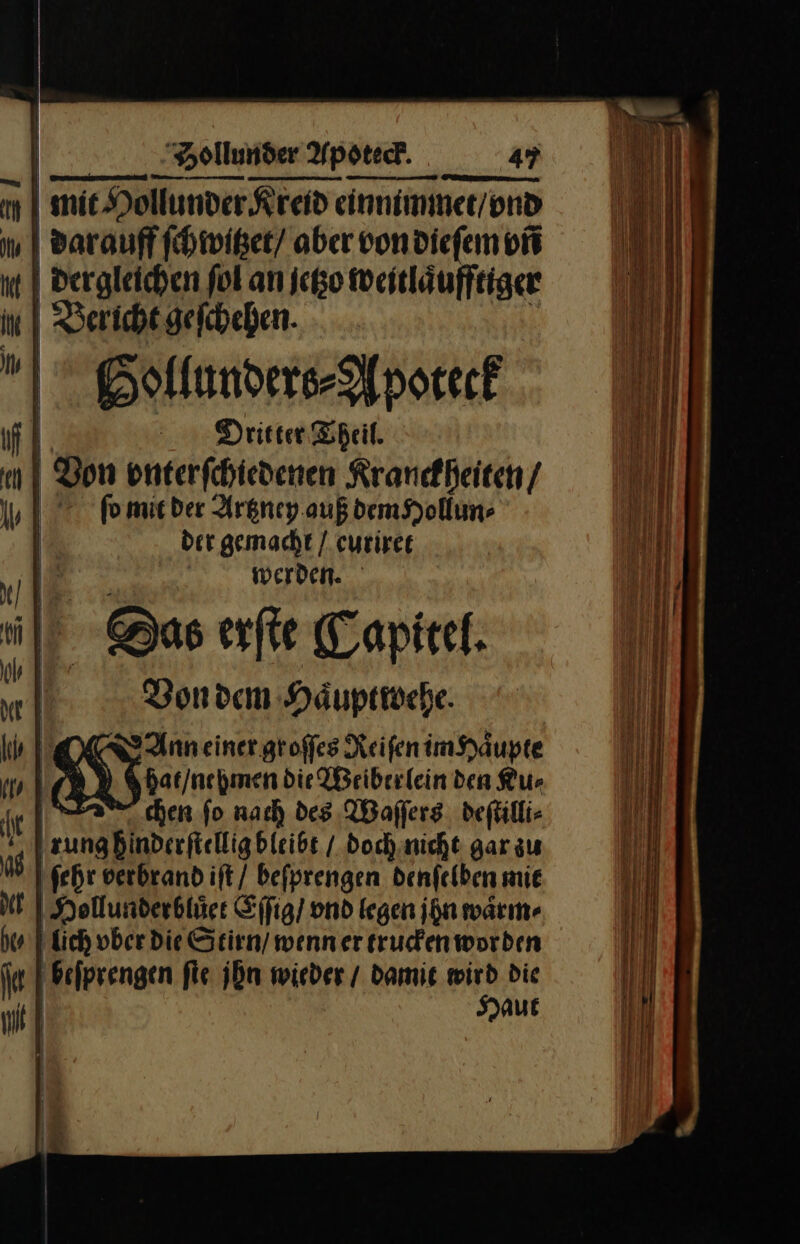 Hollunder Apoteck. 47
mit Hollunder Kreid einnimmet/vnd
darauff ſchwitzet/ aber von dieſem vñ
dergleichen ſol an jetzo weitlaͤufftiger
Bericht geſchehen.
Hollunders-Apoteck
Dritter Theil.
Von vnterſchiedenen Kranckheiten/
ſo mit der Artzney auß dem Hollun-
der gemacht / curiret
werden.
Das erſte Capitel.
Von dem Haͤuptwehe.
WAnn einer groſſes Reiſen im Haͤupte
hat/nehmen die Weiberlein den Ku-
chen ſo nach des Waſſers deſtilli-
rung hinderſtellig bleibt / doch nicht gar zu
ſehr verbrand iſt / beſprengen denſelben mit
Hollunderbluͤet Eſſig/ vnd legen jhn waͤrm-
lich vber die Stirn/ wenn er trucken worden
beſprengen ſie jhn wieder / damit wird die
Haut